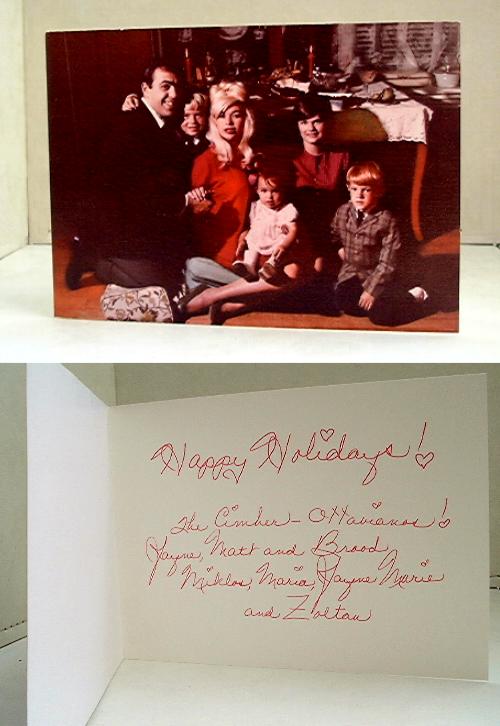 Happy Holidays!
The Cimber-Ottavianos!
Jayne, Matt and Brood,
Miklos, Maria, Jayne Marie
and Zoltan